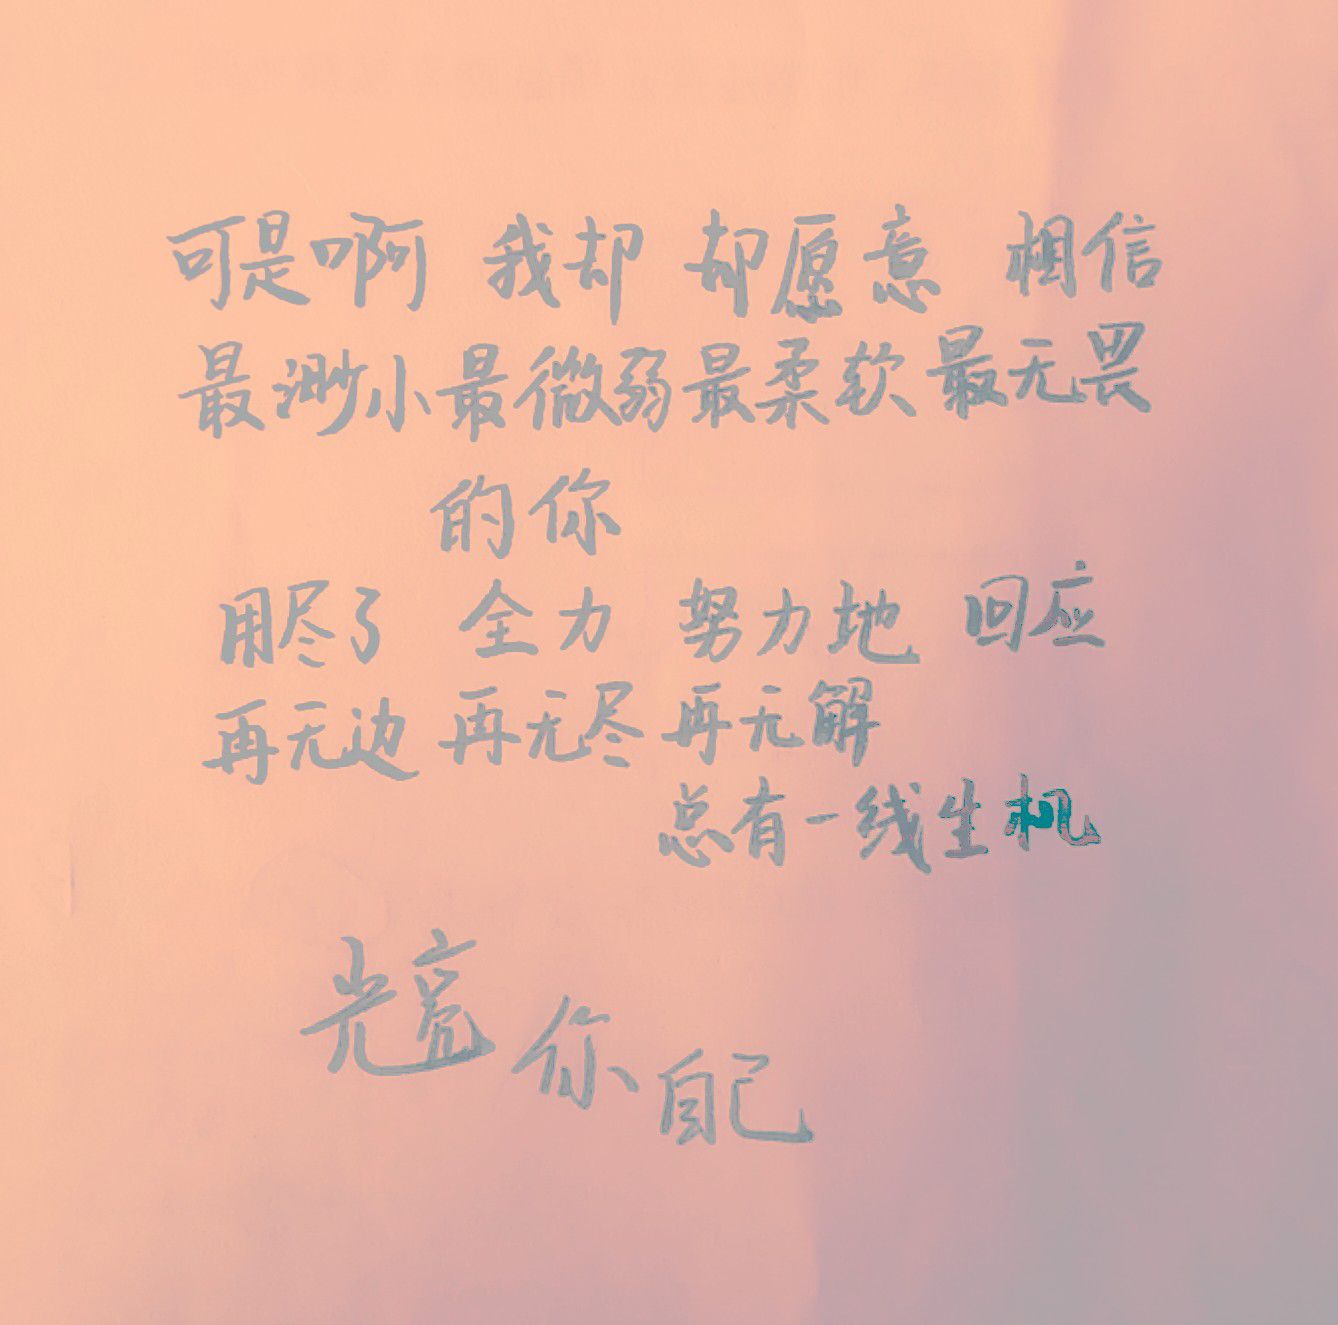 可是啊 我却 却愿意 相信
最渺小最微弱最柔软最无畏
的你
用尽了 全力 努力地 回应
再无边 再无尽 再无解
总有一线生机
光亮你自己